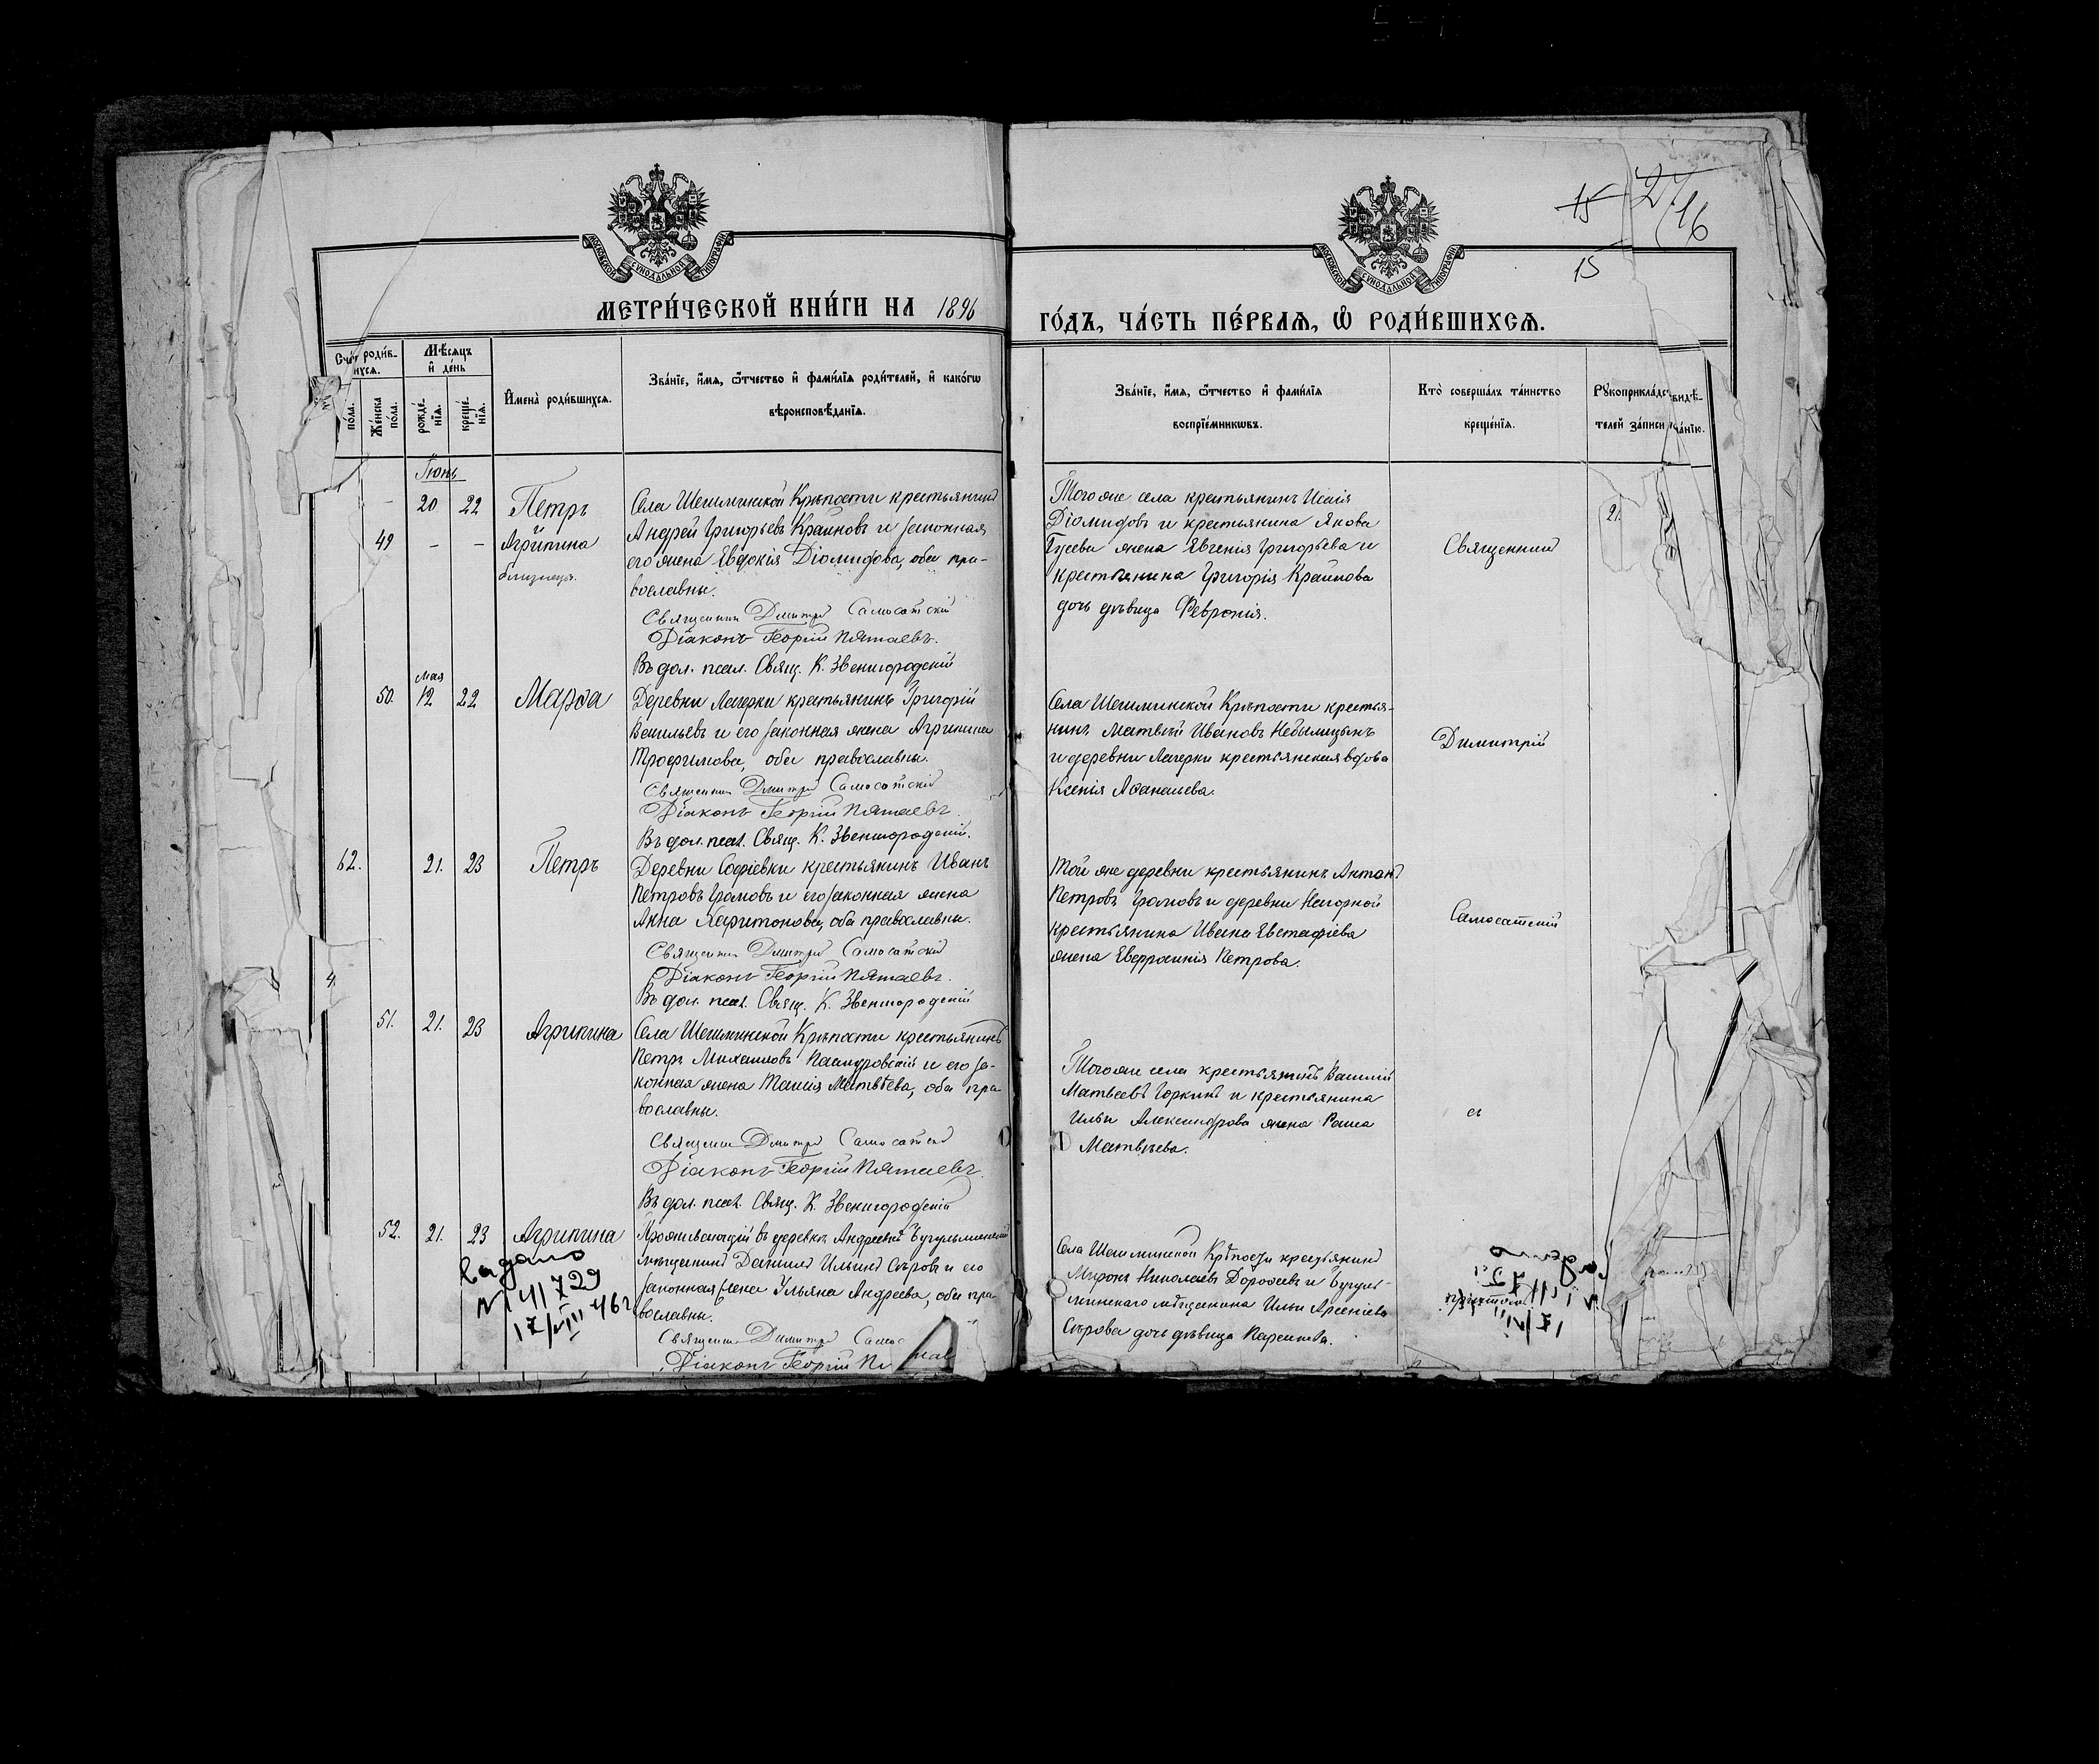 15 27/16
15
МОСКОВСКОЙ СѴНОДАЛЬНОЙ ТИПОГРАФІИ
МОСКОВСКОЙ СѴНОДАЛЬНОЙ ТИПОГРАФІИ
МЕТРИ́ЧЕСКОЙ КНИ́ГИ НА 1896
ГО́ДЪ, ЧА́СТЬ ПЕ́РВАѦ, Ѡ҆ РОДИ́ВШИХСѦ.
роди́в-
Мѣ́сѧцъ
и҆ де́нь
по́ла.
Же́нска
по́ла.
рожде́-
нїѧ.
креще́-
нїѧ.
И҆мена̀ роди́вшихсѧ.
Зва́нїе, и҆́мѧ, ѻ҆́тчество и҆ фами́лїѧ роди́телей, и҆ како́гѡ
вѣроисповѣ́данїѧ.
Зва́нїе, и҆́мѧ, ѻ҆́тчество и҆ фами́лїѧ
воспрїе́мникѡвъ.
Кто̀ соверша́лъ та́инство
креще́нїѧ.
Рꙋкоприкла́дс видѣ́-
телей за́писи ча́нїю.
Іюнь
20 22 Петръ
49 – – и Агрипина
близнецы.
Села Шешминской Крѣпости крестьянинъ
Андрей Григорьевъ Крайновъ и законная
его жена Евдокія Діомидова, оба пра-
вославны.
Священникъ Дмитрій Самосатскій
Діаконъ Георгій Пятаевъ.
Въ дол. псал. Свящ. К. Звенигородскій
Того же села крестьянинъ Исаія
Діомидовъ и крестьянина Якова
Гусева жена Евгенія Григорьева и
крестьянина Григорія Крайнова
дочь дѣвица Февронія.
Священник
21.
мая
50. 12 22 Марѳа
Деревни Лагерки крестьянинъ Григорій
Васильевъ и его законная жена Агрипина
Трофимова, оба православны.
Священник Дмитрій Самосатскій
Діаконъ Георгій Пятаевъ.
Въ дол. псал. Свящ. К. Звенигородскій.
Села Шешминской Крѣпости крестья-
нинъ Матвѣй Ивановъ Небылицынъ
и деревни Лагерки крестьянская вдова
Ксенія Аѳанасьева.
Димитрій
62. 21. 23 Петръ
Деревни Софіевки крестьянинъ Иванъ
Петровъ Громовъ и его законная жена
Анна Харитонова, оба православны.
Священник Дмитрій Самосатскій
Діаконъ Георгій Пятаевъ.
Въ дол. псал. Свящ. К. Звенигородскій
Той же деревни крестьянинъ Антонъ
Петровъ Громовъ и деревни Нагорной
крестьянина Ивана Евстафіева
жена Евфросинія Петрова.
Самосатскій
4.
51. 21. 23 Агрипина
Села Шешминской Крѣпости крестьянинъ
Петръ Михаиловъ и его за-
конная жена Таисія Матвѣева, оба пра-
вославны.
Священник Дмитрій Самосатскій
Діаконъ Георгій Пятаевъ.
Въ дол. псал. Свящ. К. Звенигородскій
Того же села крестьянинъ Василій
Матвеевъ Горкинъ и крестьянина
Ильи Александрова жена Раиса
Матвѣева.
съ
52. 21. 23 Агрипина
Проживающій въ деревнѣ Андреевкѣ Бугульминскій
мѣщанинъ Даніилъ Ильинъ Сѣровъ и его
законная жена Ульяна Андреева, оба пра-
вославны.
Священник Димитрій Самос
Діаконъ Георгій П
Села Шешминской Крѣпости крестьянинъ
Миронъ Николаевъ Дороѳеевъ и Бугуль-
минскаго мѣщанина Ильи Арсеніева
Сѣрова дочь дѣвица
причтомъ.
выдано
№ 1411729
17/VIII 46г